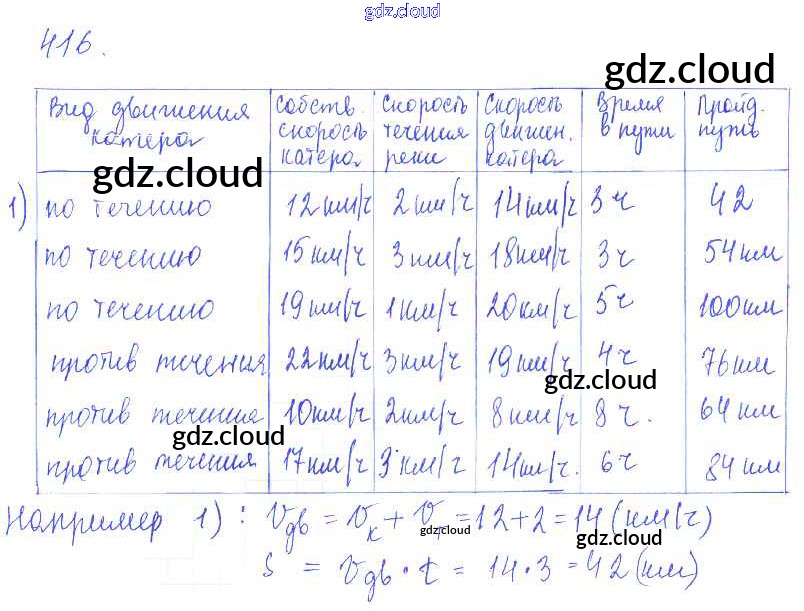 gdz.cloud
416.
gdz.cloud
Вид движения катера | Собств. скорость катера | Скорость течения реки | Скорость движен. катера | Время в пути | Пройд. путь
gdz.cloud
1) по течению 12км/ч 2км/ч 14км/ч 3ч 42
по течению 15км/ч 3км/ч 18км/ч 3ч 54км
по течению 19км/ч 1км/ч 20км/ч 5ч 100км
против течения 22км/ч 3км/ч 19км/ч 4ч 76км
gdz.cloud
против течения 10км/ч 2км/ч 8км/ч 8ч. 64км
gdz.cloud
против течения 17км/ч 3км/ч 14км/ч. 6ч 84км
Например 1): Vдв = Vк + Vт = 12+2=14 (км/ч)
gdz.cloud
gdz.cloud
S = Vдв · t = 14·3=42 (км)